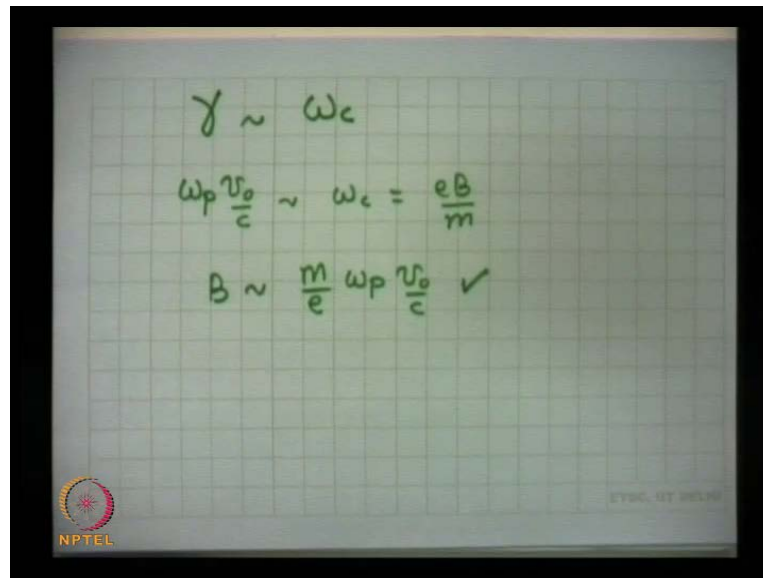 γ ~ ωc
ωp v₀/c ~ ωc = eB/m
B ~ m/e ωp v₀/c ✓
NPTEL
ETSC, IIT DELHI